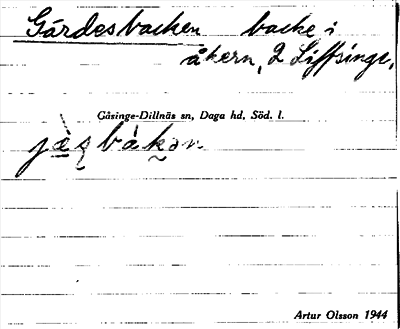 Gärdesbacken backe i
åkern, 2 Liffsinge,
Gåsinge-Dillnäs sn, Daga hd, Söd. l.
Artur Olsson 1944